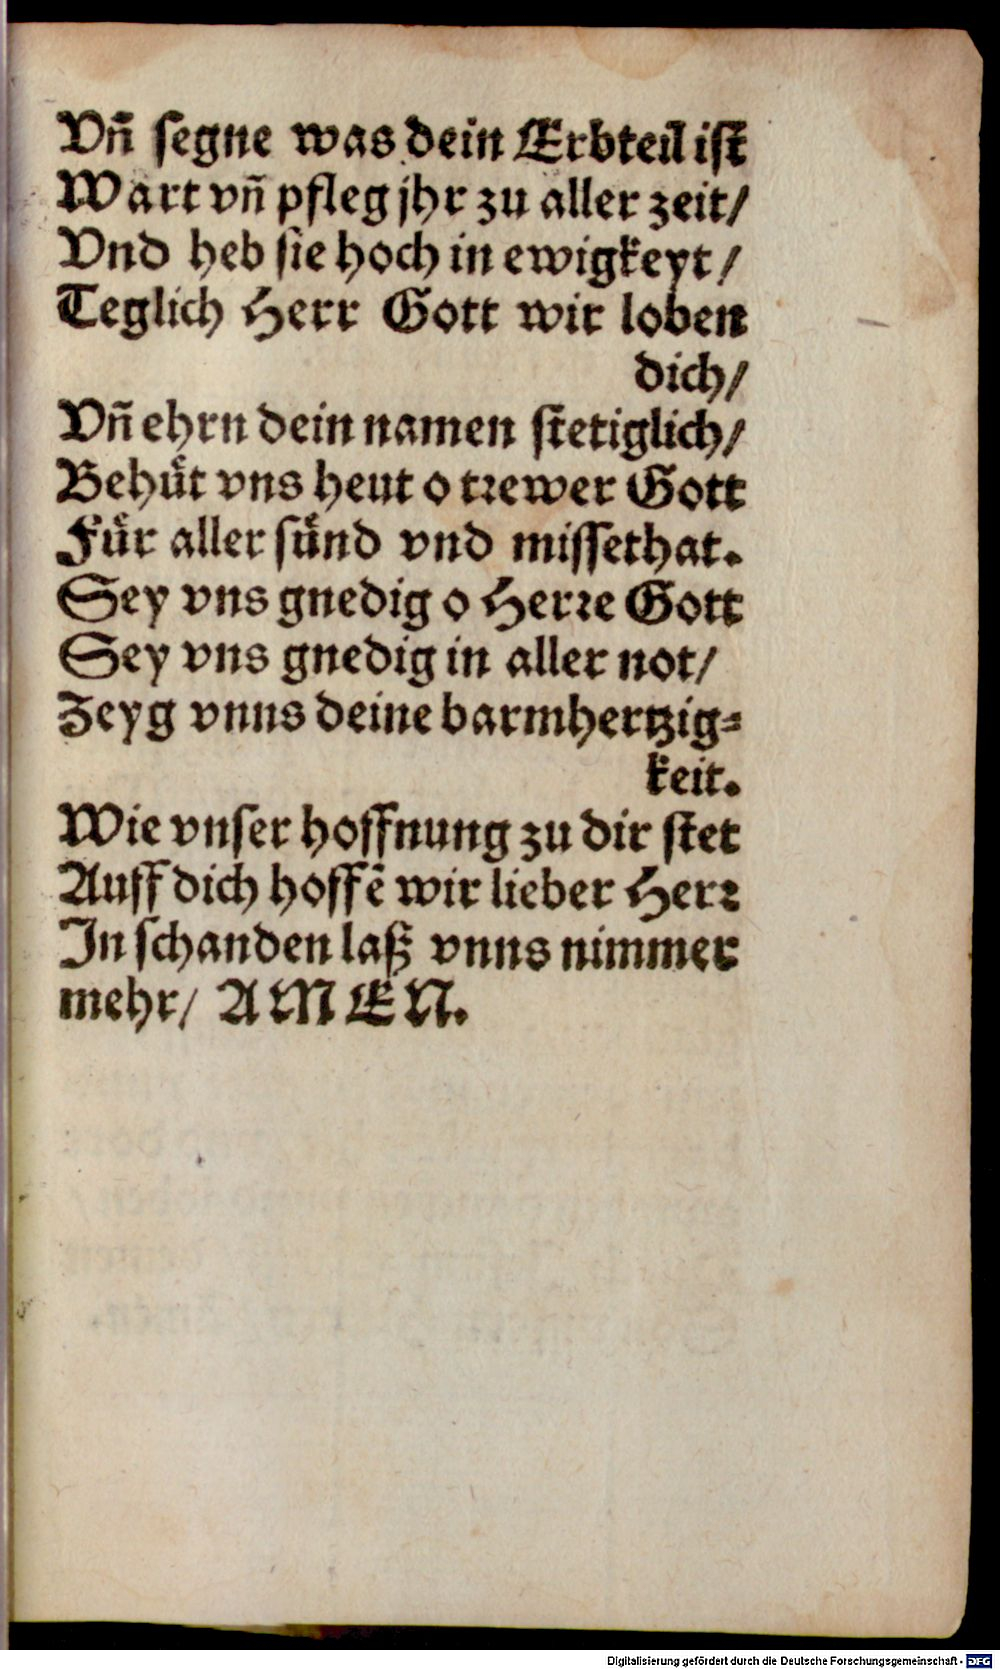 Vñ segne was dein Erbteil ist
Wart vñ pfleg jhr zu aller zeit/
Vnd heb sie hoch in ewigkeyt/
Teglich Herr Gott wir loben
dich/
Vñ ehrn dein namen stetiglich/
Behuͤt vns heut o trewer Gott
Fuͤr aller suͤnd vnd missethat.
Sey vns gnedig o Herre Gott
Sey vns gnedig in aller not/
Zeyg vnns deine barmhertzig-
keit.
Wie vnser hoffnung zu dir stet
Auff dich hoffē wir lieber Herr
In schanden laß vnns nimmer
mehr/ AMEN.
Digitalisierung gefördert durch die Deutsche Forschungsgemeinschaft - DFG